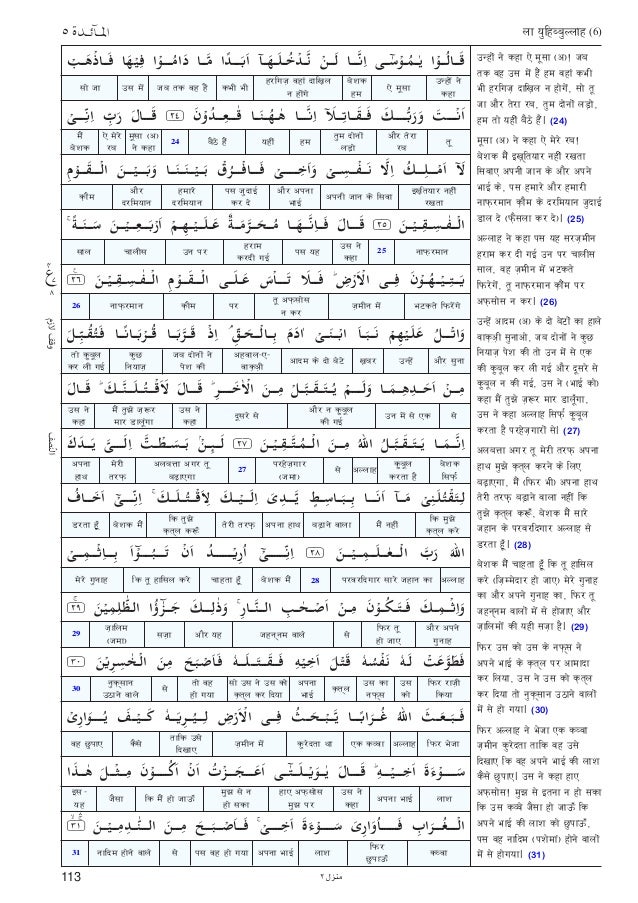 ला युहिब्बुल्लाह (6)
المآئدة ٥
قَالُوْا يٰمُوْسٰٓى اِنَّا لَنْ نَّدْخُلَهَآ اَبَدًا مَّا دَامُوْا فِيْهَا فَاذْهَبْ
उन्हों ने कहा | ऐ मूसा | बेशक हम | हरगिज़ वहां दाख़िल न होंगे | कभी भी | जब तक वह हैं | उस में | सो जा
اَنْتَ وَرَبُّكَ فَقَاتِلَآ اِنَّا هٰهُنَا قٰعِدُوْنَ ٢٤ قَالَ رَبِّ اِنِّيْ
तू | और तेरा रब | तुम दोनों लड़ो | हम | यहीं | बैठे हैं | 24 | मूसा (अ) ने कहा | ऐ मेरे रब | मैं बेशक
لَآ اَمْلِكُ اِلَّا نَفْسِيْ وَاَخِيْ فَافْرُقْ بَيْنَنَا وَبَيْنَ الْقَوْمِ
इख़्तियार नहीं रखता | अपनी जान के सिवा | और अपना भाई | पस जुदाई कर दे | हमारे दरमियान | और दरमियान | क़ौम
الْفٰسِقِيْنَ ٢٥ قَالَ فَاِنَّهَا مُحَرَّمَةٌ عَلَيْهِمْ اَرْبَعِيْنَ سَنَةً ۚ
नाफ़रमान | 25 | उस ने कहा | पस यह | हराम करदी गई | उन पर | चालीस | साल
يَتِيْهُوْنَ فِي الْاَرْضِ ؕ فَلَا تَاْسَ عَلَى الْقَوْمِ الْفٰسِقِيْنَ ٢٦
भटकते फिरेंगे | ज़मीन में | तू अफ़्सोस न कर | पर | क़ौम | नाफ़रमान | 26
وَاتْلُ عَلَيْهِمْ نَبَاَ ابْنَيْ اٰدَمَ بِالْحَقِّ ۘ اِذْ قَرَّبَا قُرْبَانًا فَتُقُبِّلَ
और सुना | उन्हें | ख़बर | आदम के दो बेटे | अहवाल-ए-वाक़ई | जब दोनों ने पेश की | कुछ नियाज़ | तो क़ुबूल कर ली गई
مِنْ اَحَدِهِمَا وَلَمْ يُتَقَبَّلْ مِنَ الْاٰخَرِ ؕ قَالَ لَاَقْتُلَنَّكَ ؕ قَالَ
से | उन में से एक | और न क़ुबूल की गई | दूसरे से | उस ने कहा | मैं तुझे ज़रूर मार डालूंगा | उस ने कहा
اِنَّمَا يَتَقَبَّلُ اللّٰهُ مِنَ الْمُتَّقِيْنَ ٢٧ لَئِنْۢ بَسَطْتَّ اِلَيَّ يَدَكَ
बेशक सिर्फ़ | क़ुबूल करता है | अल्लाह | से | परहेज़गार (जमा) | 27 | अलबत्ता अगर तू बढ़ाएगा | मेरी तरफ़ | अपना हाथ
لِتَقْتُلَنِيْ مَآ اَنَا بِبَاسِطٍ يَّدِيَ اِلَيْكَ لِاَقْتُلَكَ ۚ اِنِّيْٓ اَخَافُ
कि मुझे क़त्ल करे | मैं नहीं | बढ़ाने वाला | अपना हाथ | तेरी तरफ़ | कि तुझे क़त्ल करूँ | बेशक मैं | डरता हूँ
اللّٰهَ رَبَّ الْعٰلَمِيْنَ ٢٨ اِنِّيْٓ اُرِيْدُ اَنْ تَبُوْٓاَ بِاِثْمِيْ
अल्लाह | परवरदिगार सारे जहान का | 28 | बेशक मैं | चाहता हूँ | कि तू हासिल करे | मेरे गुनाह
وَاِثْمِكَ فَتَكُوْنَ مِنْ اَصْحٰبِ النَّارِ ۚ وَذٰلِكَ جَزٰٓؤُا الظّٰلِمِيْنَ ۚ ٢٩
और अपने गुनाह | फिर तू हो जाए | से | जहन्नम वाले | और यह | सज़ा | ज़ालिम (जमा) | 29
فَطَوَّعَتْ لَهٗ نَفْسُهٗ قَتْلَ اَخِيْهِ فَقَتَلَهٗ فَاَصْبَحَ مِنَ الْخٰسِرِيْنَ ٣٠
फिर राज़ी किया | उस को | उस का नफ़्स | क़त्ल | अपना भाई | सो उस ने उस को क़त्ल कर दिया | तो वह हो गया | से | नुक़्सान उठाने वाले | 30
فَبَعَثَ اللّٰهُ غُرَابًا يَّبْحَثُ فِي الْاَرْضِ لِيُرِيَهٗ كَيْفَ يُوَارِيْ
फिर भेजा | अल्लाह | एक कव्वा | कुरेदता था | ज़मीन में | ताकि उसे दिखाए | कैसे | वह छुपाए
سَوْءَةَ اَخِيْهِ ؕ قَالَ يٰوَيْلَتٰٓى اَعَجَزْتُ اَنْ اَكُوْنَ مِثْلَ هٰذَا
लाश | अपना भाई | उस ने कहा | हाए अफ़्सोस मुझ पर | मुझ से न हो सका | कि मैं हो जाऊँ | जैसा | इस - यह
الْغُرَابِ فَاُوَارِيَ سَوْءَةَ اَخِيْ ۚ فَاَصْبَحَ مِنَ النّٰدِمِيْنَ ٣١
कव्वा | फिर छुपाऊँ | लाश | अपना भाई | पस वह हो गया | से | नादिम होने वाले | 31
उन्हों ने कहा ऐ मूसा (अ)! जब
तक वह उस में हैं हम वहां कभी
भी हरगिज़ दाख़िल न होंगे, सो तू
जा और तेरा रब, तुम दोनों लड़ो,
हम तो यहीं बैठे हैं। (24)
मूसा (अ) ने कहा ऐ मेरे रब!
बेशक मैं इख़्तियार नहीं रखता
सिवाए अपनी जान के और अपने
भाई के, पस हमारे और हमारी
नाफ़रमान क़ौम के दरमियान जुदाई
डाल दे (फ़ैसला कर दे)। (25)
अल्लाह ने कहा पस यह सरज़मीन
हराम कर दी गई उन पर चालीस
साल, वह ज़मीन में भटकते
फिरेंगे, तू नाफ़रमान क़ौम पर
अफ़्सोस न कर। (26)
उन्हें आदम (अ) के दो बेटों का हाले
वाक़ई सुनाओ, जब दोनों ने कुछ
नियाज़ पेश की तो उन में से एक
की क़ुबूल कर ली गई और दूसरे से
क़ुबूल न की गई, उस ने (भाई को)
कहा मैं तुझे ज़रूर मार डालूँगा,
उस ने कहा अल्लाह सिर्फ़ क़ुबूल
करता है परहेज़गारों से। (27)
अलबत्ता अगर तू मेरी तरफ़ अपना
हाथ मुझे क़त्ल करने के लिए
बढ़ाएगा, मैं (फिर भी) अपना हाथ
तेरी तरफ़ बढ़ाने वाला नहीं कि
तुझे क़त्ल करूँ, बेशक मैं सारे
जहान के परवरदिगार अल्लाह से
डरता हूँ। (28)
बेशक मैं चाहता हूँ कि तू हासिल
करे (ज़िम्मेदार हो जाए) मेरे गुनाह
का और अपने गुनाह का, फिर तू
जहन्नम वालों में से होजाए और
ज़ालिमों की यही सज़ा है। (29)
फिर उस को उस के नफ़्स ने
अपने भाई के क़त्ल पर आमादा
कर लिया, उस ने उस को क़त्ल
कर दिया तो नुक़्सान उठाने वालों
में से हो गया। (30)
फिर अल्लाह ने भेजा एक कव्वा
ज़मीन कुरेदता ताकि वह उसे
दिखाए कि वह अपने भाई की लाश
कैसे छुपाए। उस ने कहा हाए
अफ़्सोस! मुझ से इतना न हो सका
कि उस कव्वे जैसा हो जाऊँ कि
अपने भाई की लाश को छुपाऊँ,
पस वह नादिम (पशेमां) होने वालों
में से होगया। (31)
113
منزل ٢